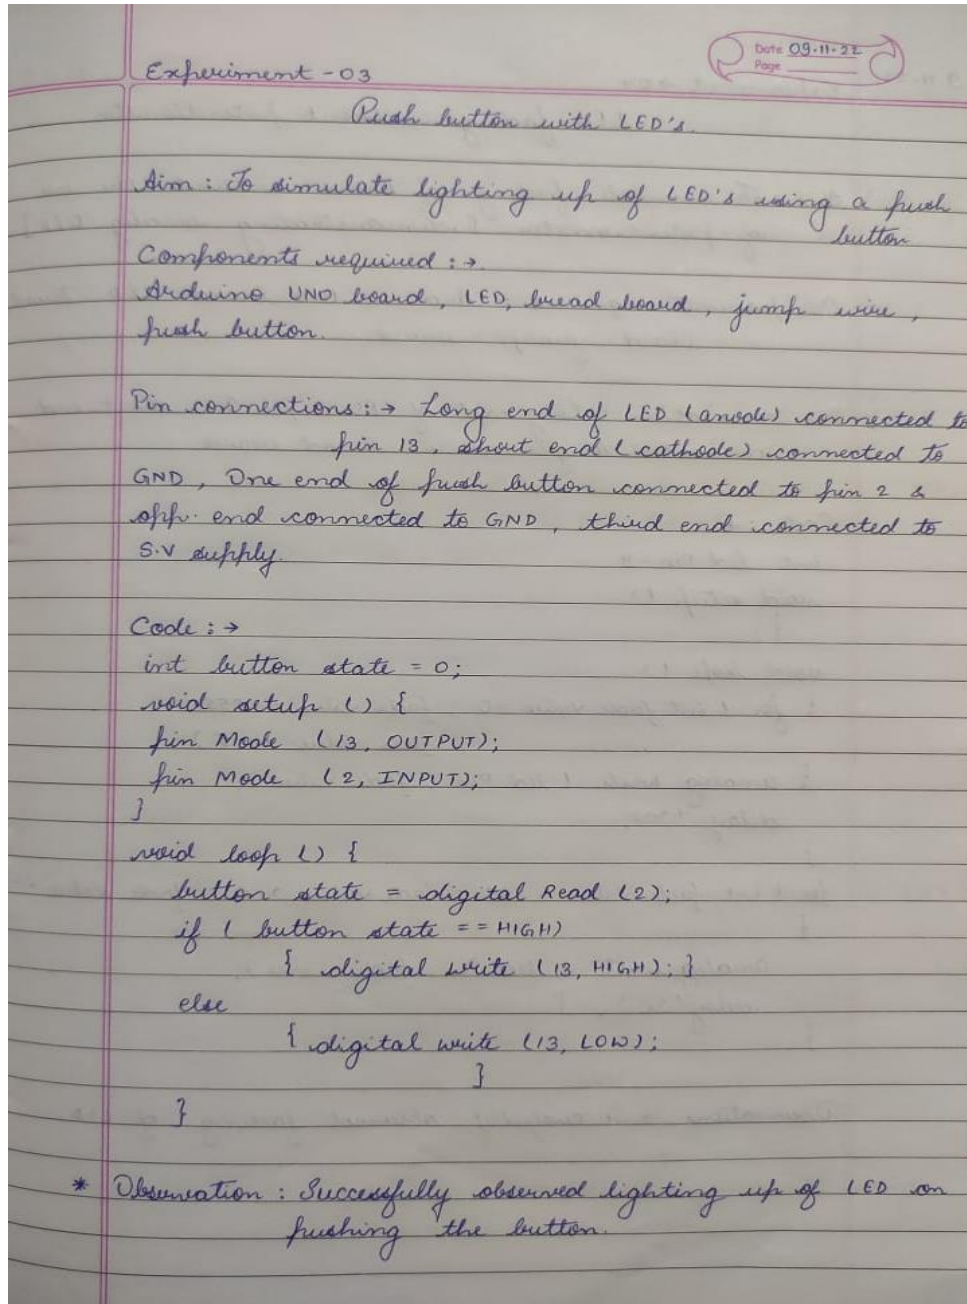 Date 09-11-22
Page
Experiment - 03
Push button with LED's.
Aim : To simulate lighting up of LED's using a push
button
Components required : →
Arduino UNO board, LED, bread board, jump wire,
push button.
Pin connections : → Long end of LED (anode) connected to
pin 13, short end (cathode) connected to
GND, One end of push button connected to pin 2 &
opp. end connected to GND, third end connected to
5.V supply.
Code : →
int button state = 0;
void setup () {
pin Mode (13, OUTPUT);
pin Mode (2, INPUT);
}
void loop () {
button state = digital Read (2);
if ( button state == HIGH)
{ digital write (13, HIGH); }
else
{ digital write (13, LOW);
}
}
* Observation : Successfully observed lighting up of LED on
pushing the button.